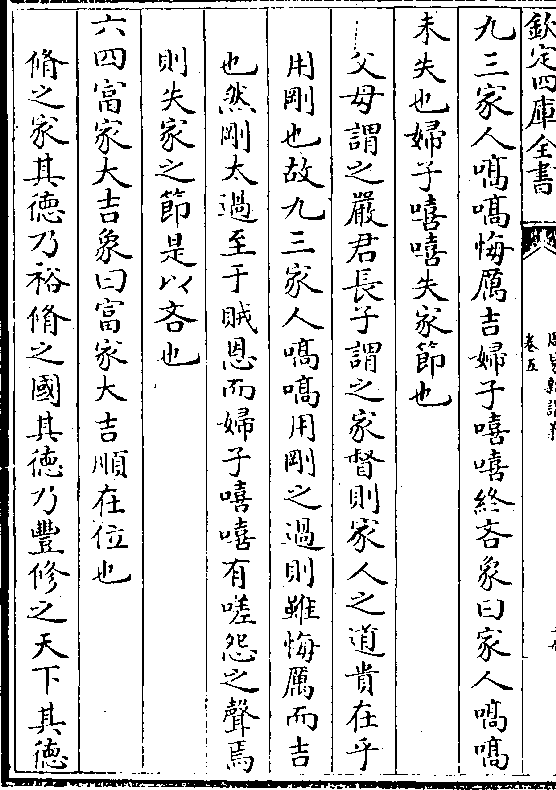 欽定四庫全書
卷五
九三家人嗃嗃悔厲吉婦子嘻嘻終吝象曰家人嗃嗃
未失也婦子嘻嘻失家節也
父母謂之嚴君長子謂之家督則家人之道貴在乎
用剛也故九三家人嗃嗃用剛之過則雖悔厲而吉
也然剛太過至于賊恩而婦子嘻嘻有嗟怨之聲焉
則失家之節是以吝也
六四富家大吉象曰富家大吉順在位也
脩之家其徳乃裕脩之國其徳乃豐修之天下其徳